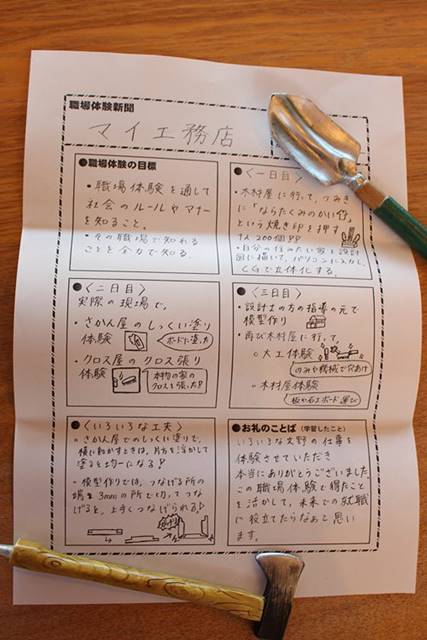 職場体験新聞
マイ工務店
●職場体験の目標
・職場体験を通して
社会のルールやマナー
を知ること。
・その職場で知れる
ことを全力で知る
●〈一日目〉
・木村屋に行って、つみき
に「ならたくみのかい」
という焼き印を押す
・自分の住みたい家を設計
図に描いて、パソコンに入力し、
CGで立体化する。
●〈二日目〉
実際の現場で、
・さかん屋のしっくい塗り
体験
ボードに塗った
・クロス屋のクロス張り
体験
本物の家の
クロスを張った!
●〈三日目〉
・設計士の方の指導の元で
模型作り
・再び木村屋に行って、
○大工体験
のみや機械で穴あけ
○木村屋体験
板や石こうボード運び
●〈いろいろな工夫〉
・さかん屋でのしっくい塗りで、
横に動かすときは、片方を浮かして
塗ると均一になる!
・模型作りでは、つなげる所の
端を3mmの所で切ってつな
げると、上手くつなげられる♪
●お礼のことば(学習したこと)
いろいろな分野の仕事を
体験させていただき
本当にありがとうございました。
この職場体験で得たこと
を活かして、未来での就職
に役立てたらなぁと思い
ます。